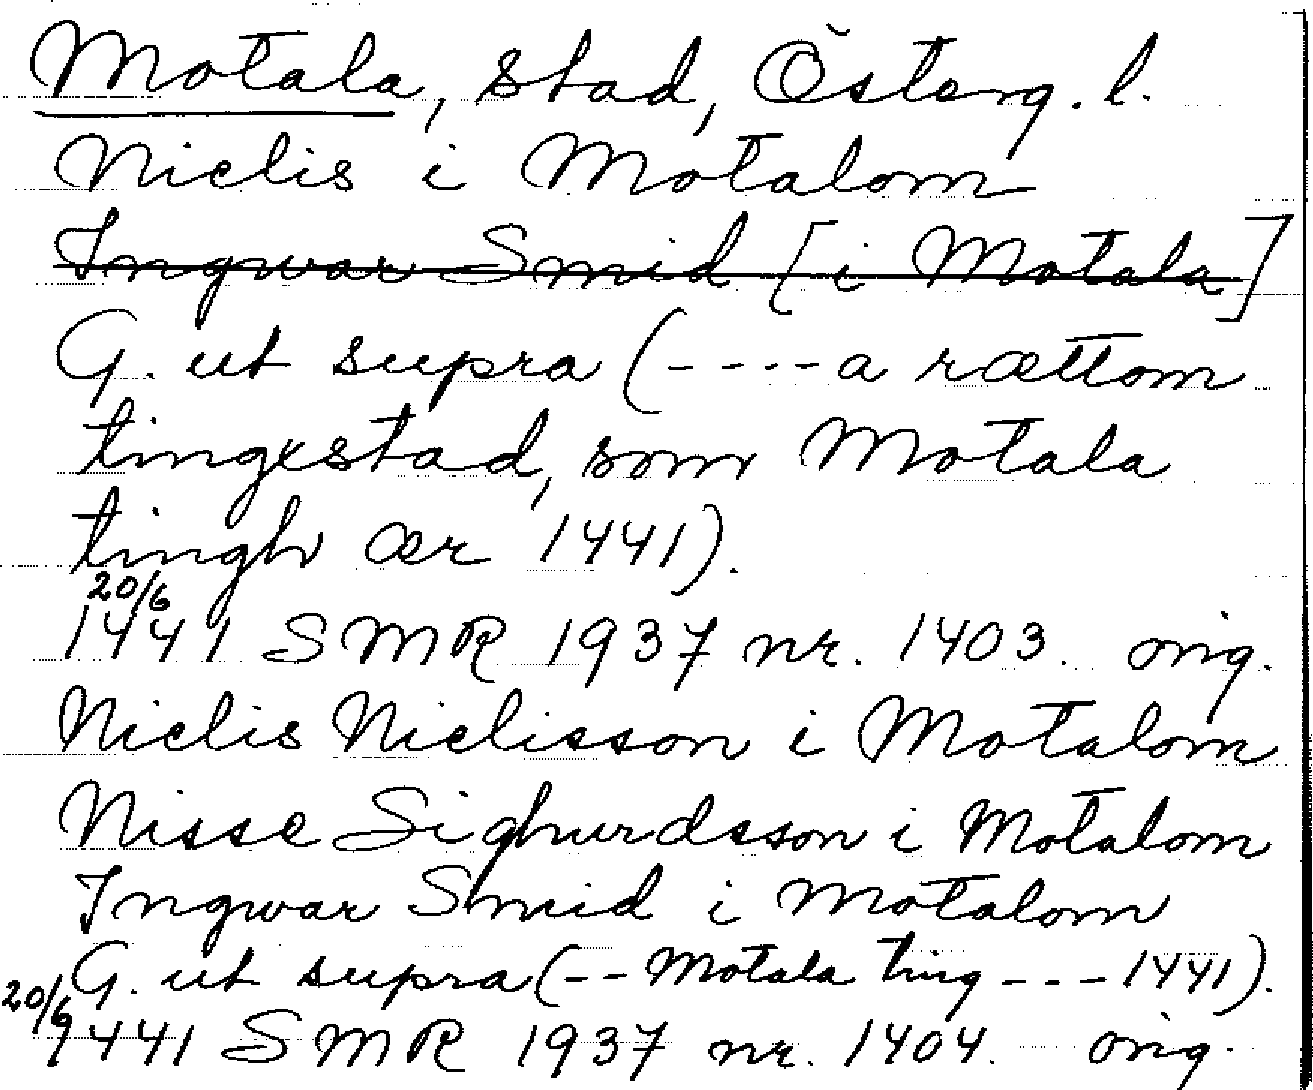 Motala, stad, Österg. l.
Niclis i Motalom
Ingwar Smid [i Motala]
G. ut supra (----a rættom
tingxstad, som Motala
tingh ær 1441).
20/6
1441 SMR 1937 nr. 1403. orig.
Niclis Niclisson i Motalom
Nisse Sighurdsson i Motalom
Ingwar Smid i Motalom
G. ut supra (-- Motala ting --- 1441).
20/6
1441 SMR 1937 nr. 1404. orig.